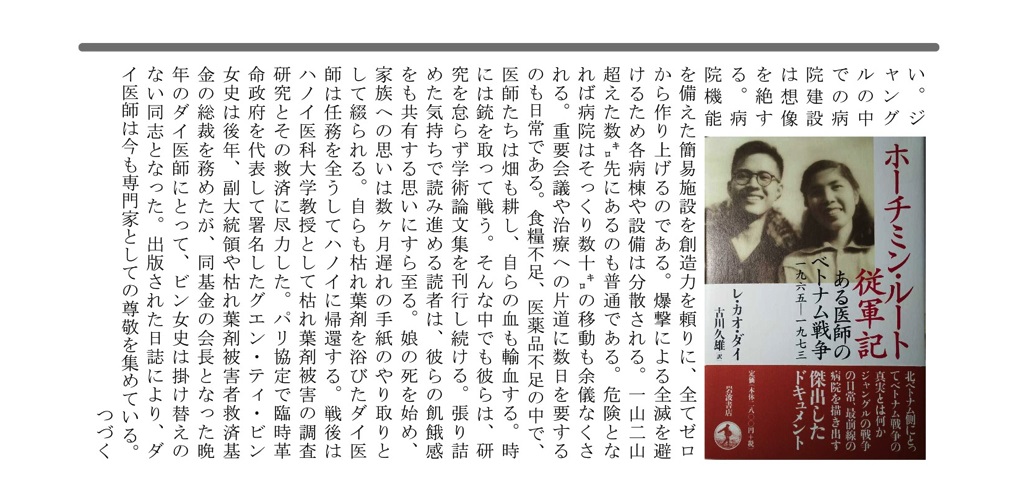 い。ジ
ャング
ルの中
での病
院建設
は想像
を絶す
る。病
院機能
ホーチミン・ルート
従軍記
ある医師の
ベトナム戦争
一九六五―一九七三
レ・カオ・ダイ
古川久雄 訳
北ベトナム側にとっ
てベトナム戦争の
真実とは何か
ジャングルの戦争
の日常、最前線の
病院を描き出す
傑出した
ドキュメント
定価(本体二八〇〇円+税)
岩波書店
を備えた簡易施設を創造力を頼りに、全てゼロ
から作り上げるのである。爆撃による全滅を避
けるため各病棟や設備は分散される。一山二山
超えた数㌔先にあるのも普通である。危険とな
れば病院はそっくり数十㌔の移動も余儀なくさ
れる。重要会議や治療への片道に数日を要する
のも日常である。食糧不足、医薬品不足の中で、
医師たちは畑も耕し、自らの血も輸血する。時
には銃を取って戦う。そんな中でも彼らは、研
究を怠らず学術論文集を刊行し続ける。張り詰
めた気持ちで読み進める読者は、彼らの飢餓感
をも共有する思いにすら至る。娘の死を始め、
家族への思いは数ヶ月遅れの手紙のやり取りと
して綴られる。自らも枯れ葉剤を浴びたダイ医
師は任務を全うしてハノイに帰還する。戦後は
ハノイ医科大学教授として枯れ葉剤被害の調査
研究とその救済に尽力した。パリ協定で臨時革
命政府を代表して署名したグエン・ティ・ビン
女史は後年、副大統領や枯れ葉剤被害者救済基
金の総裁を務めたが、同基金の会長となった晩
年のダイ医師にとって、ビン女史は掛け替えの
ない同志となった。出版された日誌により、ダ
イ医師は今も専門家としての尊敬を集めている。
つづく